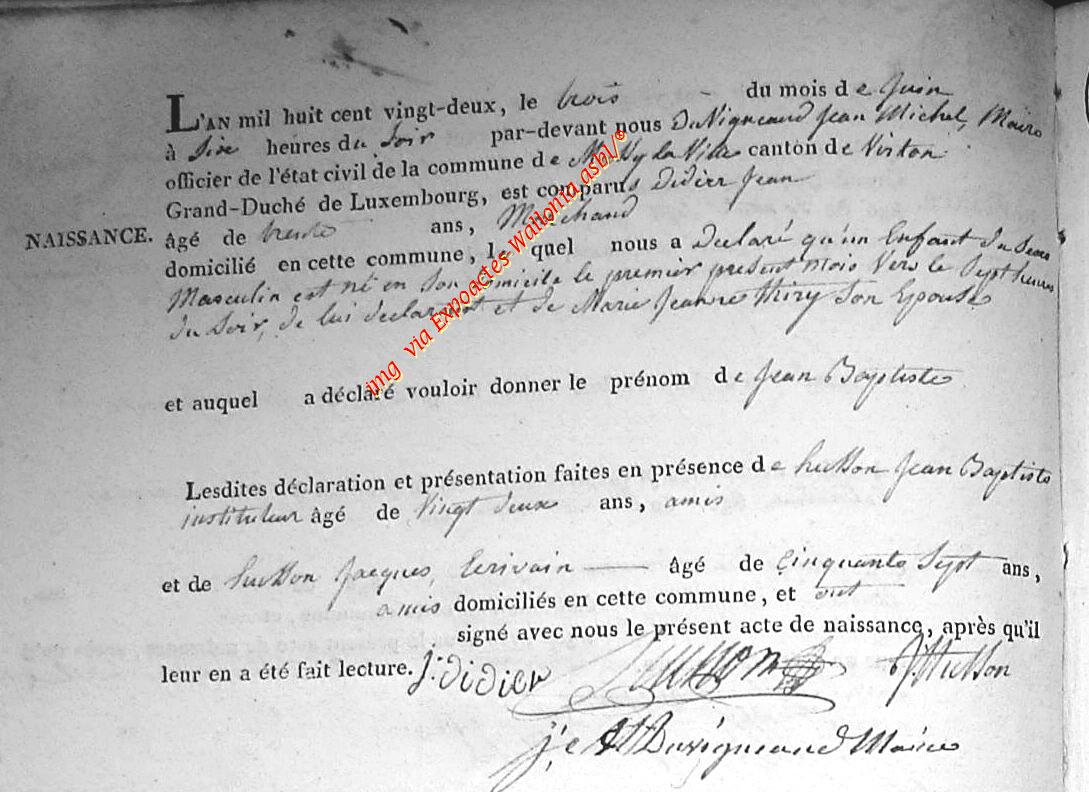 L'AN mil huit cent vingt-deux, le trois du mois de Juin
à Six heures du Soir par-devant nous DuVigneaud Jean Michel, Maire
officier de l'état civil de la commune de Mussy la Ville canton de Virton
Grand-Duché de Luxembourg, est comparus Didier Jean
NAISSANCE. âgé de trente ans, Marchand
domicilié en cette commune, le quel nous a Déclaré qu'un Enfant du Sexe
Masculin est né en Son domicile le premier présent mois Vers le Sept heures
du Soir, de lui déclarant et de Marie Jeanne thiry Son Epouse
et auquel a déclaré vouloir donner le prénom de Jean Baptiste
Lesdites déclaration et présentation faites en présence de husson Jean Baptiste
instituteur âgé de Vingt deux ans, amis
et de husson Jacques, Ecrivain âgé de Cinquante Sept ans,
amis domiciliés en cette commune, et ont
signé avec nous le présent acte de naissance, après qu'il
leur en a été fait lecture. J: Didier Husson J Husson
Duvigneaud Maire
img via Expoactes Wallonia asbl/®